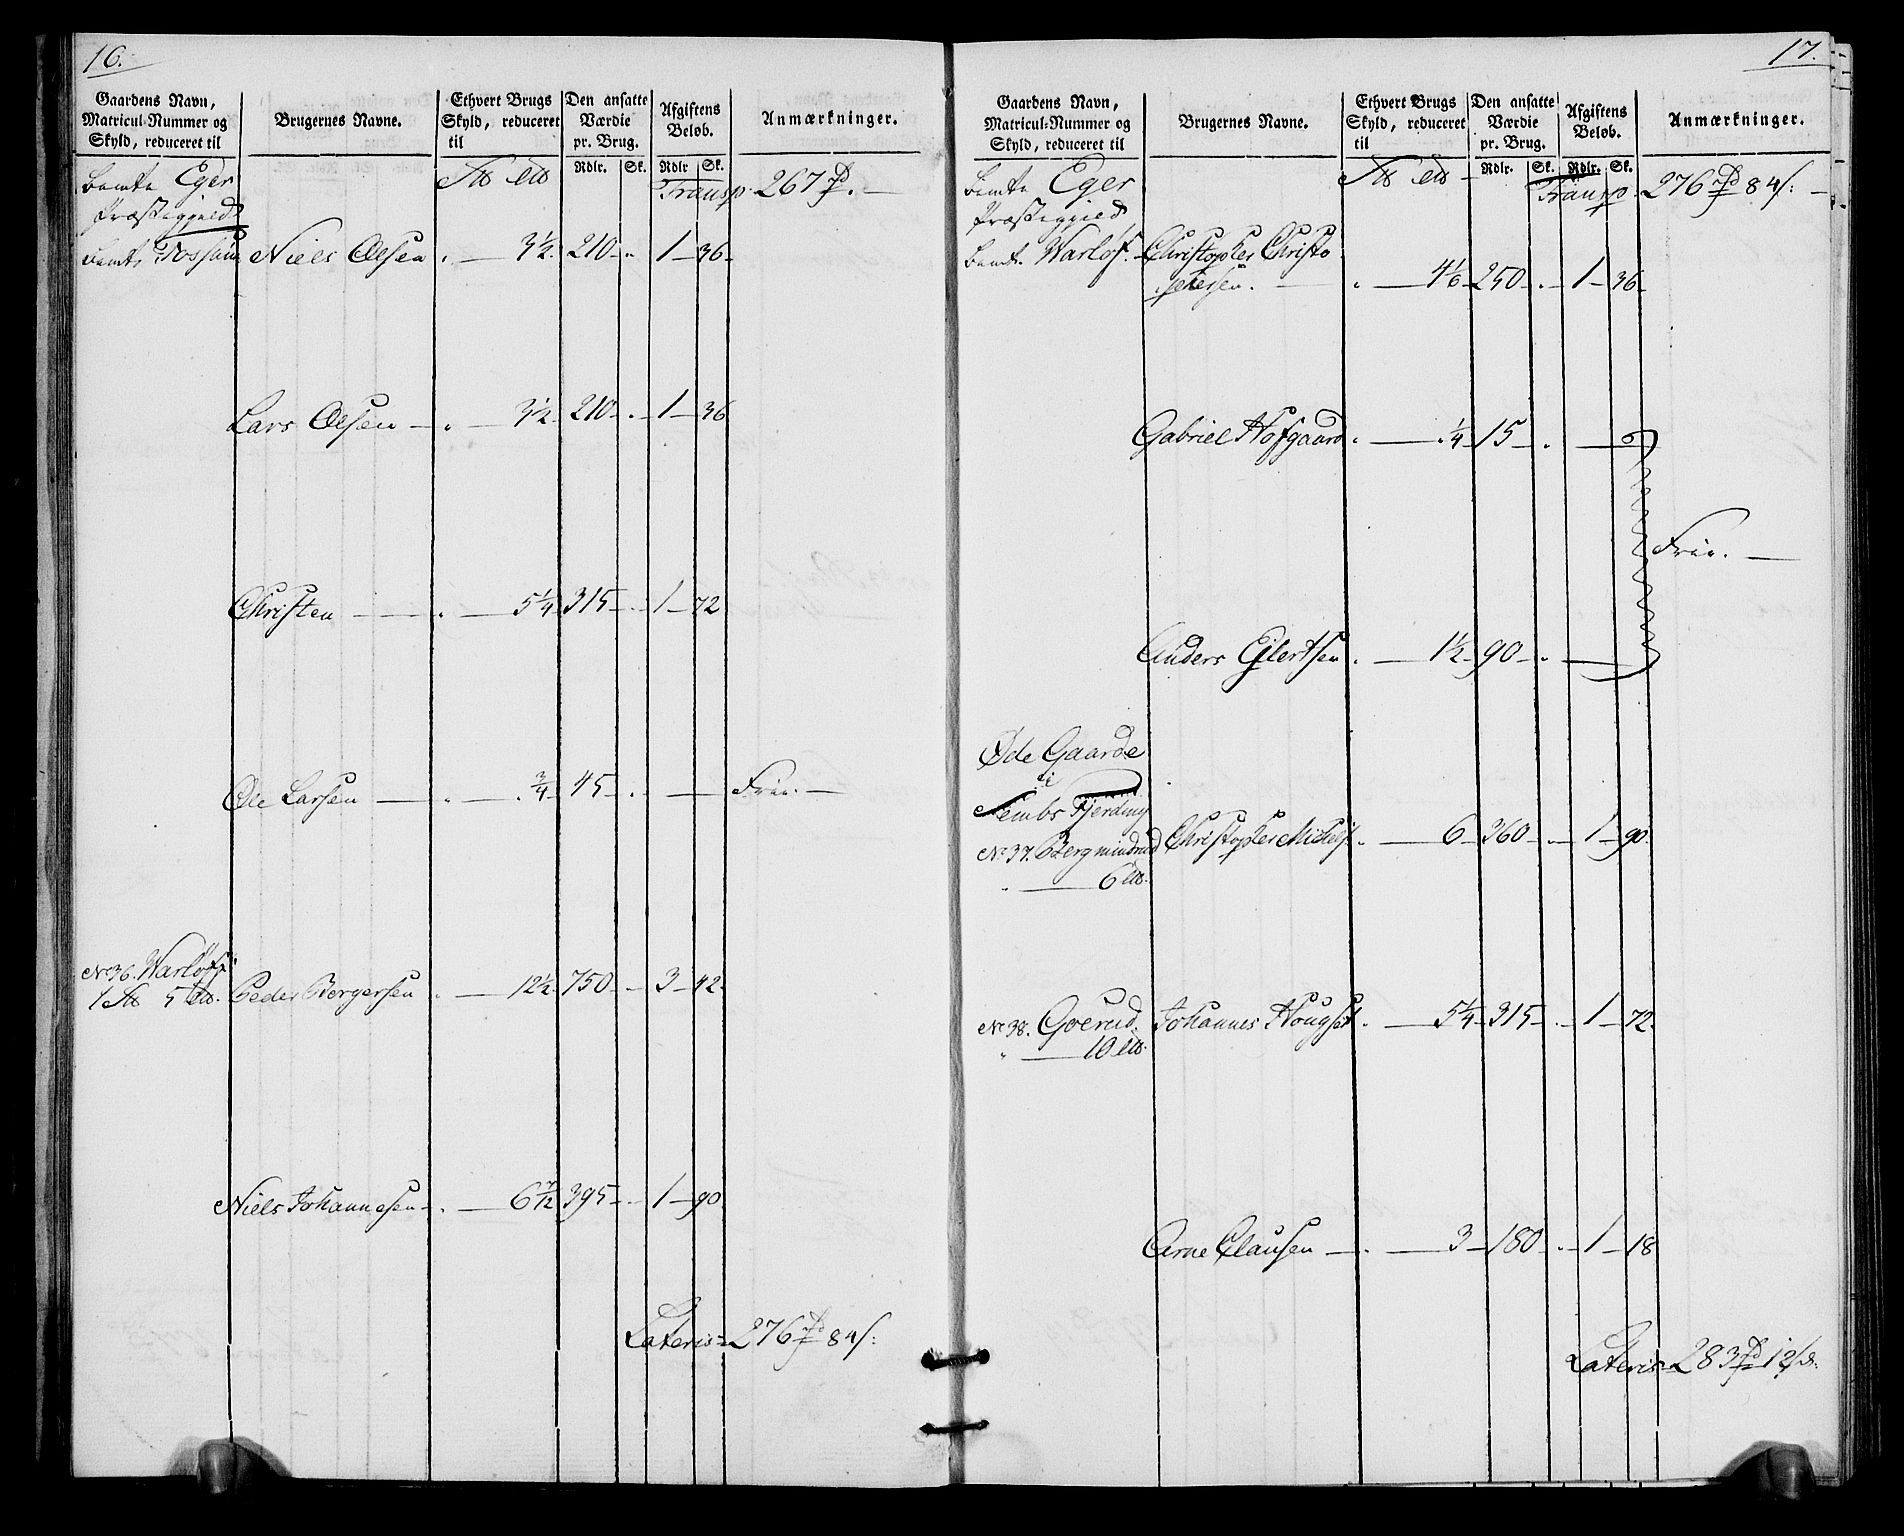 16.
Gaardens Navn, Matricul-Nummer og Skyld, reduceret til
Brugernes Navne.
Ethvert Brugs Skyld, reduceret til
Den ansatte Værdie pr. Brug.
Afgiftens Beløb.
Anmærkninger.
Rdlr. Sk. Rdlr Sk.
bemte Eger Transp. 267
Præstegjeld
bemte Fossum Niels Olsen 3½ 210 1 36
Lars Olsen 3½ 210 1 36
Christen 5¼ 315 1 72
Ole Larsen ¾ 45 Frie.
No 36. Warløs
1 5 Peder Bergersen 12½ 750 3 42
Niels Johannesen 6 7/12 395 1 90
Lateris 276 84
17.
Gaardens Navn, Matricul-Nummer og Skyld, reduceret til
Brugernes Navne.
Ethvert Brugs Skyld, reduceret til
Den ansatte Værdie pr. Brug.
Afgiftens Beløb.
Anmærkninger.
Rdlr. Sk. Rdlr. Sk.
bemte Eger Transp. 276 84
Præstegjeld
bemte Warløs Christopher Christo
phersen. 4⅙ 250 1 36
Gabriel Hofgaard ¼ 15
Frie.
Anders Ejlertsen 1½ 90
Øde Gaarde
i
Sembs Fjerding
No 37. Bergmindrud Christopher Michels. 6 360 1 90
6
No 38. Goerud. Johannes Hougset 5¼ 315 1 72
10
Arne Clausen 3 180 1 18
Lateris 283 12